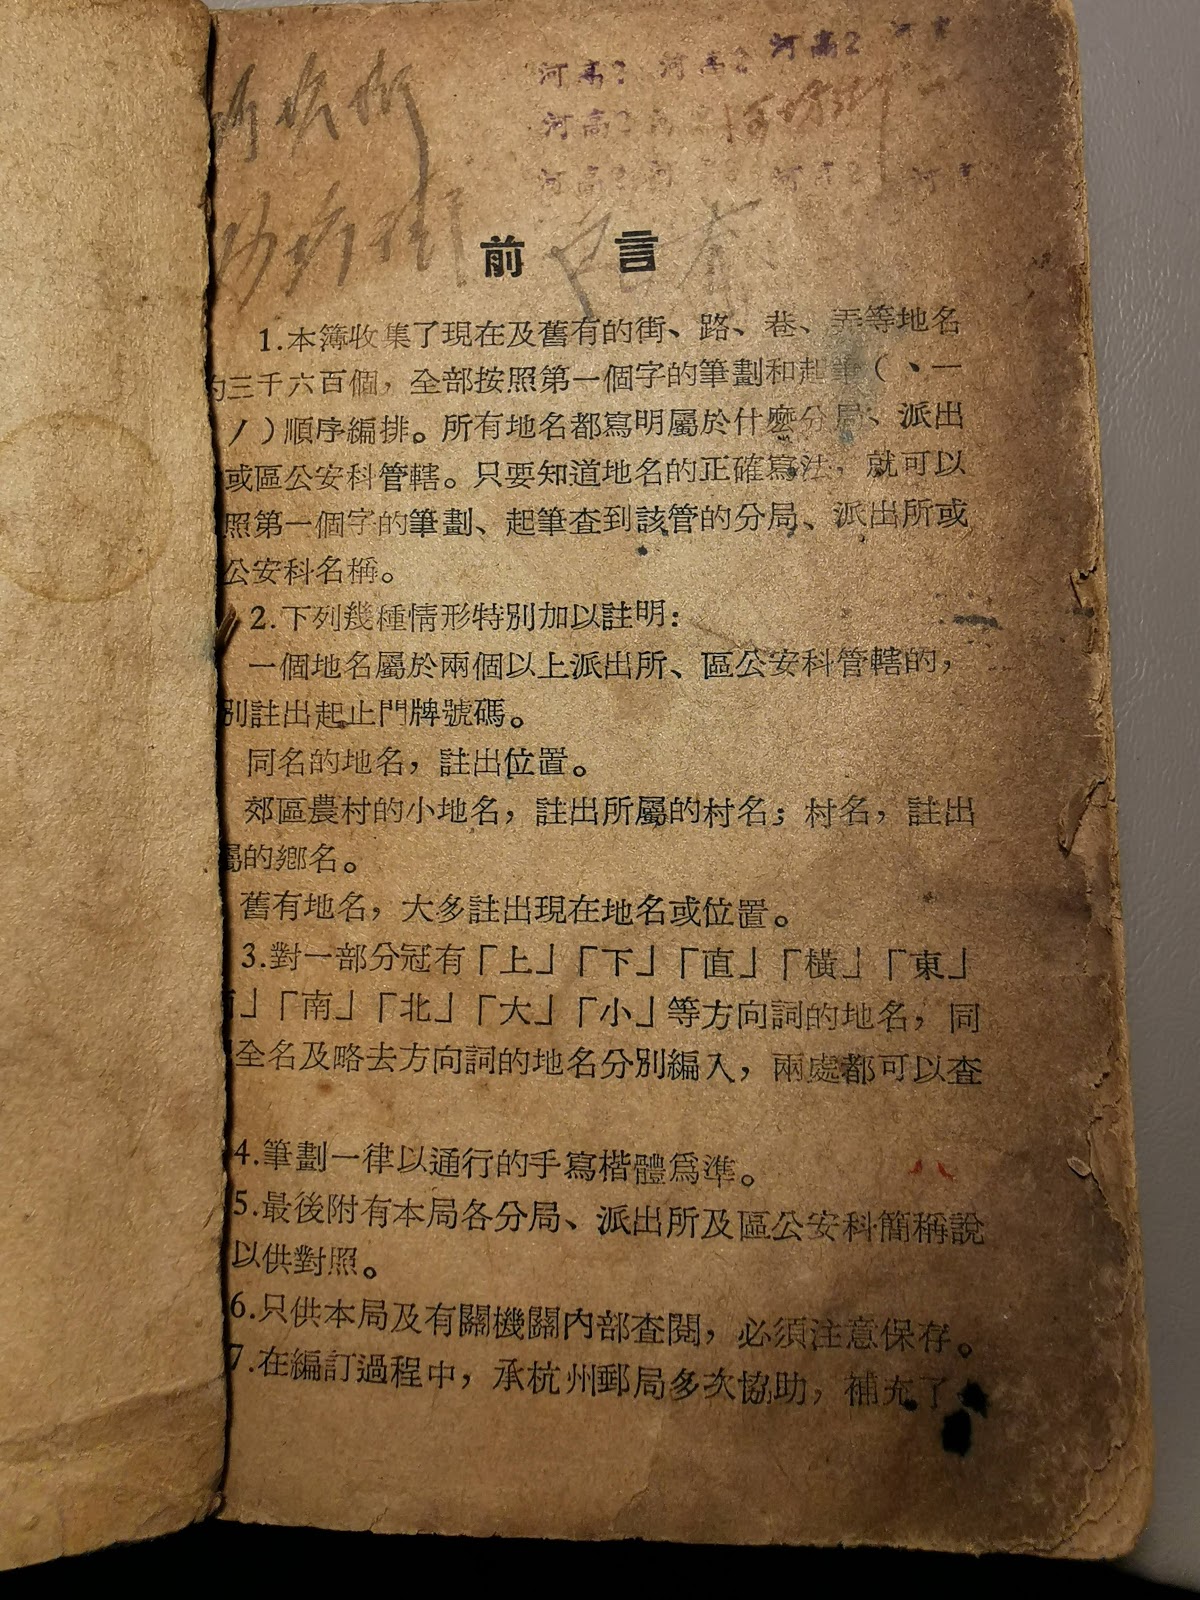 河高2 河高2 河高2 河高
河高2
河高2 河 河高2 河高
前言
1.本簿收集了現在及舊有的街、路、巷、弄等地名
三千六百個，全部按照第一個字的筆劃和起筆（、一
ノ）順序編排。所有地名都寫明屬於什麽分局、派出
或區公安科管轄。只要知道地名的正確寫法，就可以
照第一個字的筆劃、起筆查到該管的分局、派出所或
公安科名稱。
2.下列幾種情形特別加以註明：
一個地名屬於兩個以上派出所、區公安科管轄的，
別註出起止門牌號碼。
同名的地名，註出位置。
郊區農村的小地名，註出所屬的村名；村名，註出
屬的鄉名。
舊有地名，大多註出現在地名或位置。
3.對一部分冠有「上」「下」「直」「橫」「東」
」「南」「北」「大」「小」等方向詞的地名，同
全名及略去方向詞的地名分別編入，兩處都可以查
4.筆劃一律以通行的手寫楷體爲準。
5.最後附有本局各分局、派出所及區公安科簡稱說
以供對照。
6.只供本局及有關機關內部查閱，必須注意保存。
7.在編訂過程中，承杭州郵局多次協助，補充了